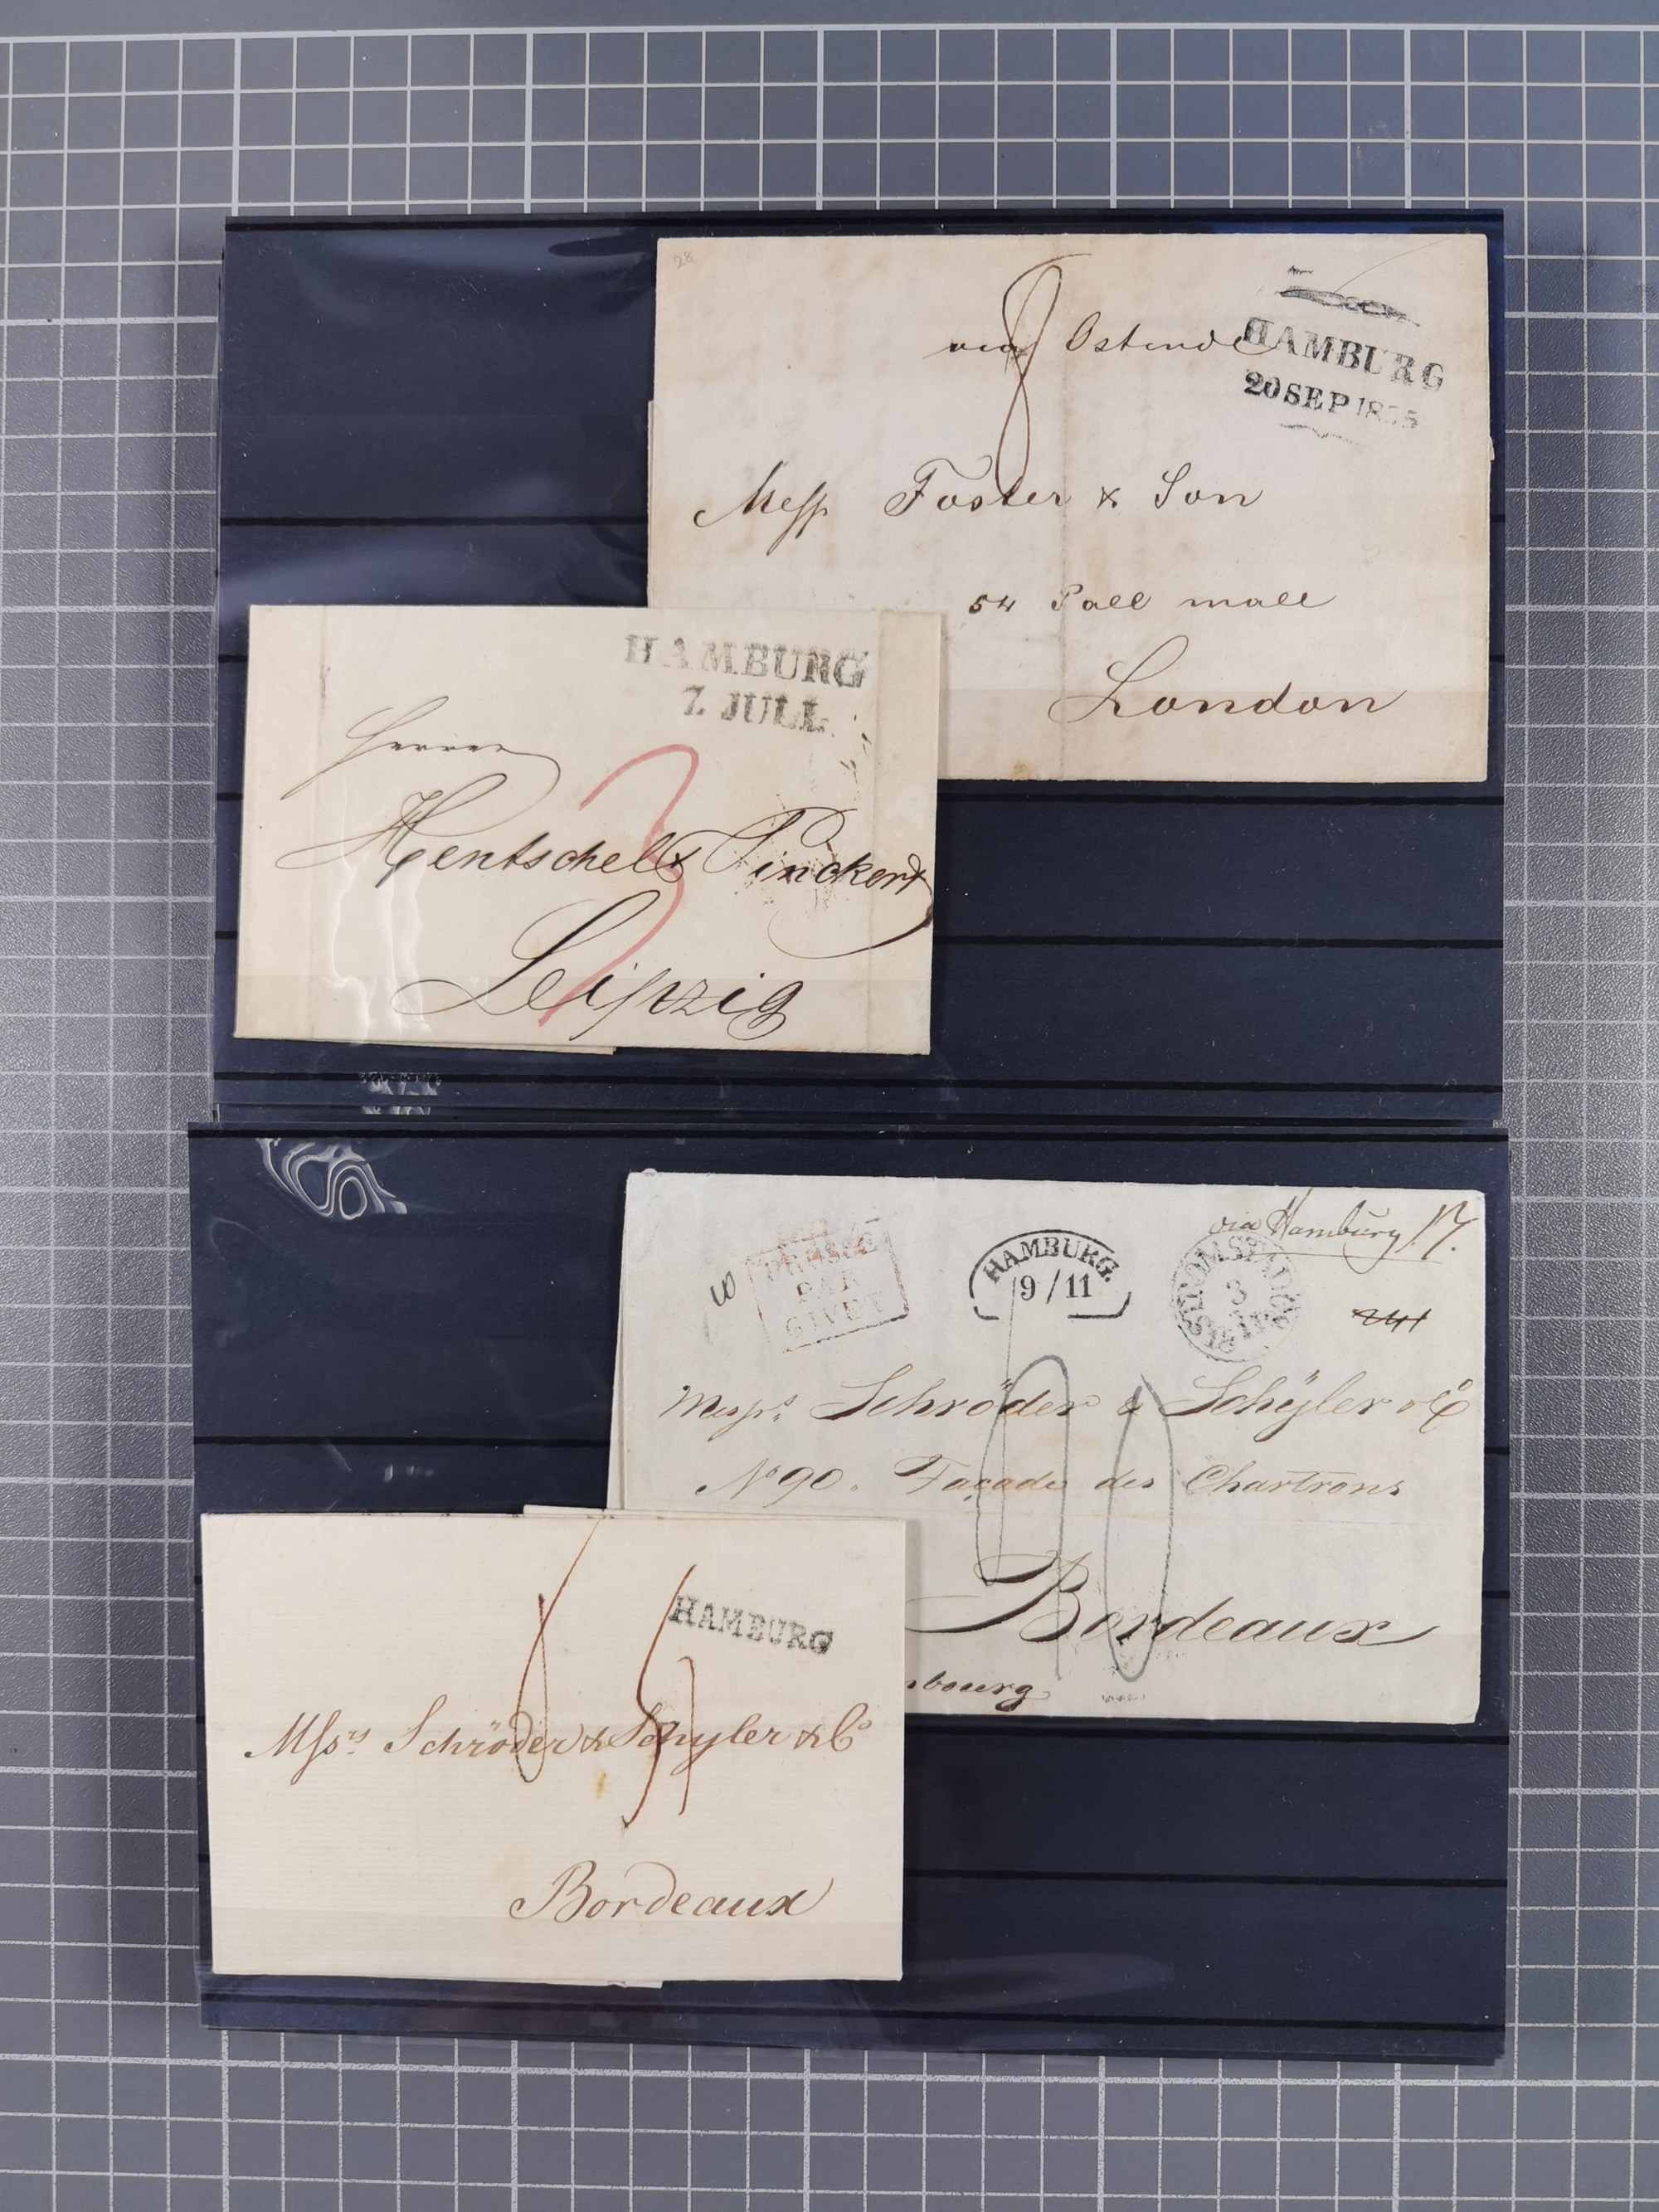 28
via Ostende
HAMBURG
20 SEP 18
Mess Foster & Son
54 Pall mall
London
HAMBURG
7. JULI.
Herren
Hentschel & Pinckert
Leipzig
via Hamburg
PRUSSE
PAR
GIVET
HAMBURG.
9/11
STRÖMSTAD
3
Messrs Schröder & Schÿler & Co
No 90. Façade des Chartrons
Bordeaux
bourg
HAMBURG
Messrs Schröder & Schyler & Co
Bordeaux